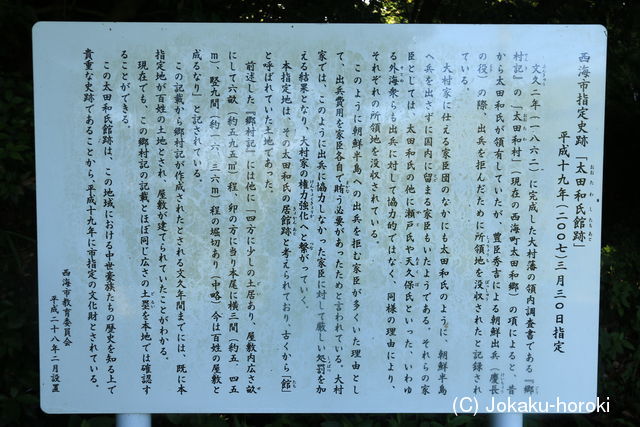 西海市指定史跡「太田和氏館跡」
おおたわしたちあと
平成十九年(二〇〇七)三月三〇日指定
文久二年(一八六二)に完成した大村藩の領内調査書である『郷
村記』の「太田和村」(現在の西海町太田和郷)の項によると、昔
から太田和氏が領有していたが、豊臣秀吉による朝鮮出兵(慶長
の役)の際、出兵を拒んだために所領地を没収されたと記録され
ている。
大村家に仕える家臣団のなかにも太田和氏のように、朝鮮半島
へ兵を出さずに国内に留まる家臣もいたようである。それらの家
臣としては、太田和氏の他に瀬戸氏や大久保氏といった、いわゆ
る外海衆らも出兵に対して協力的ではなく、同様の理由により、
それぞれの所領地を没収されている。
このように朝鮮半島への出兵を拒む家臣が多くいた理由とし
て、出兵費用を家臣各自で賄う必要があったためと言われている。大村
家では、このように出兵に協力しなかった家臣に対して厳しい処罰を加
える結果となり、大村家の権力強化へと繋がっていく。
本指定地は、その太田和氏の居館跡と考えられており、古くから「館」
と呼ばれていた土地であった。
前述した『郷村記』には他に「四方に少しの土居あり、屋敷内広さ畝
にして六畝(約五九五㎡)程、卯の方に当り本尾に横三間(約五.四五
m)、竪九間(約一六.三六m)程の堀切あり(中略)今は百姓の屋敷と
成るなり」と記されている。
この記載から郷村記が作成されたとされる文久年間までには、既に本
指定地が百姓の土地とされ、屋敷が建てられていたことがわかる。
現在でも、この郷村記の記載とほぼ同じ広さの土塁を本地では確認す
ることができる。
この太田和氏館跡は、この地域における中世豪族たちの歴史を知る上で
貴重な史跡であることから、平成十九年に市指定の文化財とされている。
西海市教育委員会
平成二十八年二月設置
(C) Jokaku-horoki